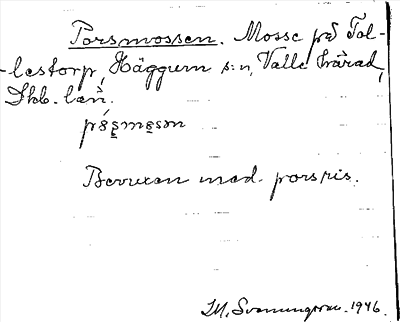 Porsmossen. Mosse på Tol-
-lestorp, Häggum s:n, Valle härad,
Skb. län.
Bevuxen med porsris.
M. Svanungsson. 1946.